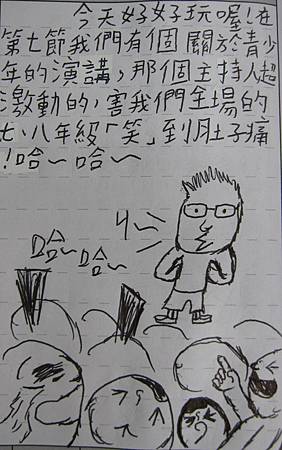 今天好好玩喔!在
第七節我們有個關於青少
年的演講,那個主持人超
激動的,害我們全場的
七、八年級「笑」到肚子痛
!哈~哈~
ㄐ~
哈~
哈~